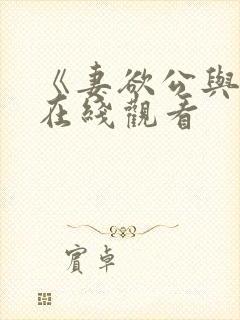 《妻欲公與
在綫觀看
賓卓